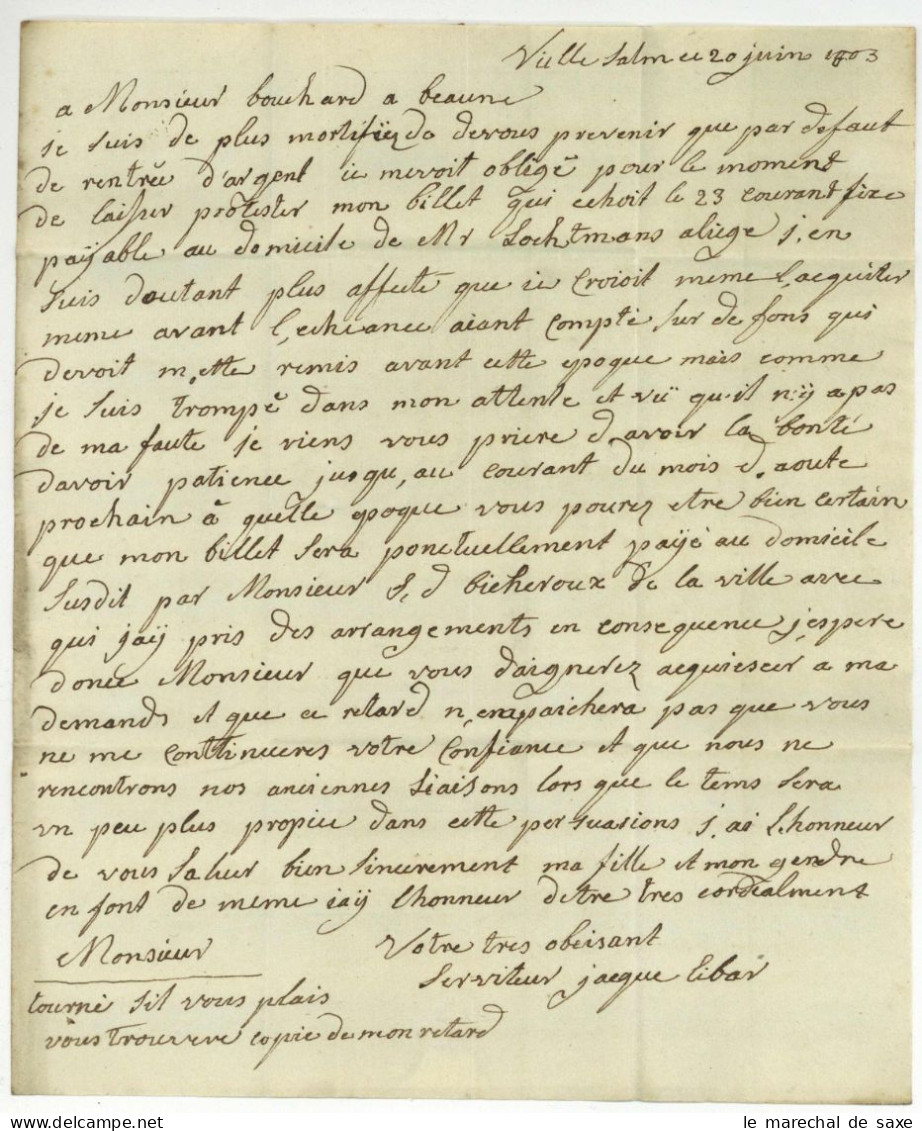 Vielle Salm ce 20 juin 1803
a Monsieur bouchard a beaune
je suis de plus mortifiez de devous prevenir que par defaut
de rentrée d'argent ie mevoit obligé pour le moment
de laisser protester mon billet qui echoit le 23 courant fixe
payable au domicile de Mr Lochtmans aliege j, en
suis dautant plus affecté que ie croioit meme l, aquiter
meme avant l, echeance aiant compté sur de fons qui
devoit m, ettre remis avant cette epoque mais comme
je suis trompé dans mon attente et vü qu, il n, ÿ a pas
de ma faute je viens vous priere d, avoir la bonté
davoir patience jusqu, au courant du mois d, aoute
prochain à quelle epoque vous pourez etre bien certain
que mon billet sera ponctuellement paÿé au domicile
susdit par Monsieur J, d bicheroux de la ville avec
qui jaÿ pris des arrangements en consequence j, espere
donce Monsieur que vous daignerez aquiescer a ma
demande et que ce retard n, empaichera pas que vous
ne me conttinueres votre Confiance et que nous ne
rencontrons nos anciennes liaisons lors que le tems sera
un peu plus propice dans cette persuasions j, ai l, honneur
de vous saluer bien sincerement ma fille et mon gendre
en font de meme iaÿ lhonneur detre tres cordealment
Monsieur Votre tres obeisant
Serviteur jacque Libar
tourné sil vous plais
vous trouvere copie de mon retard
le marechal de saxe